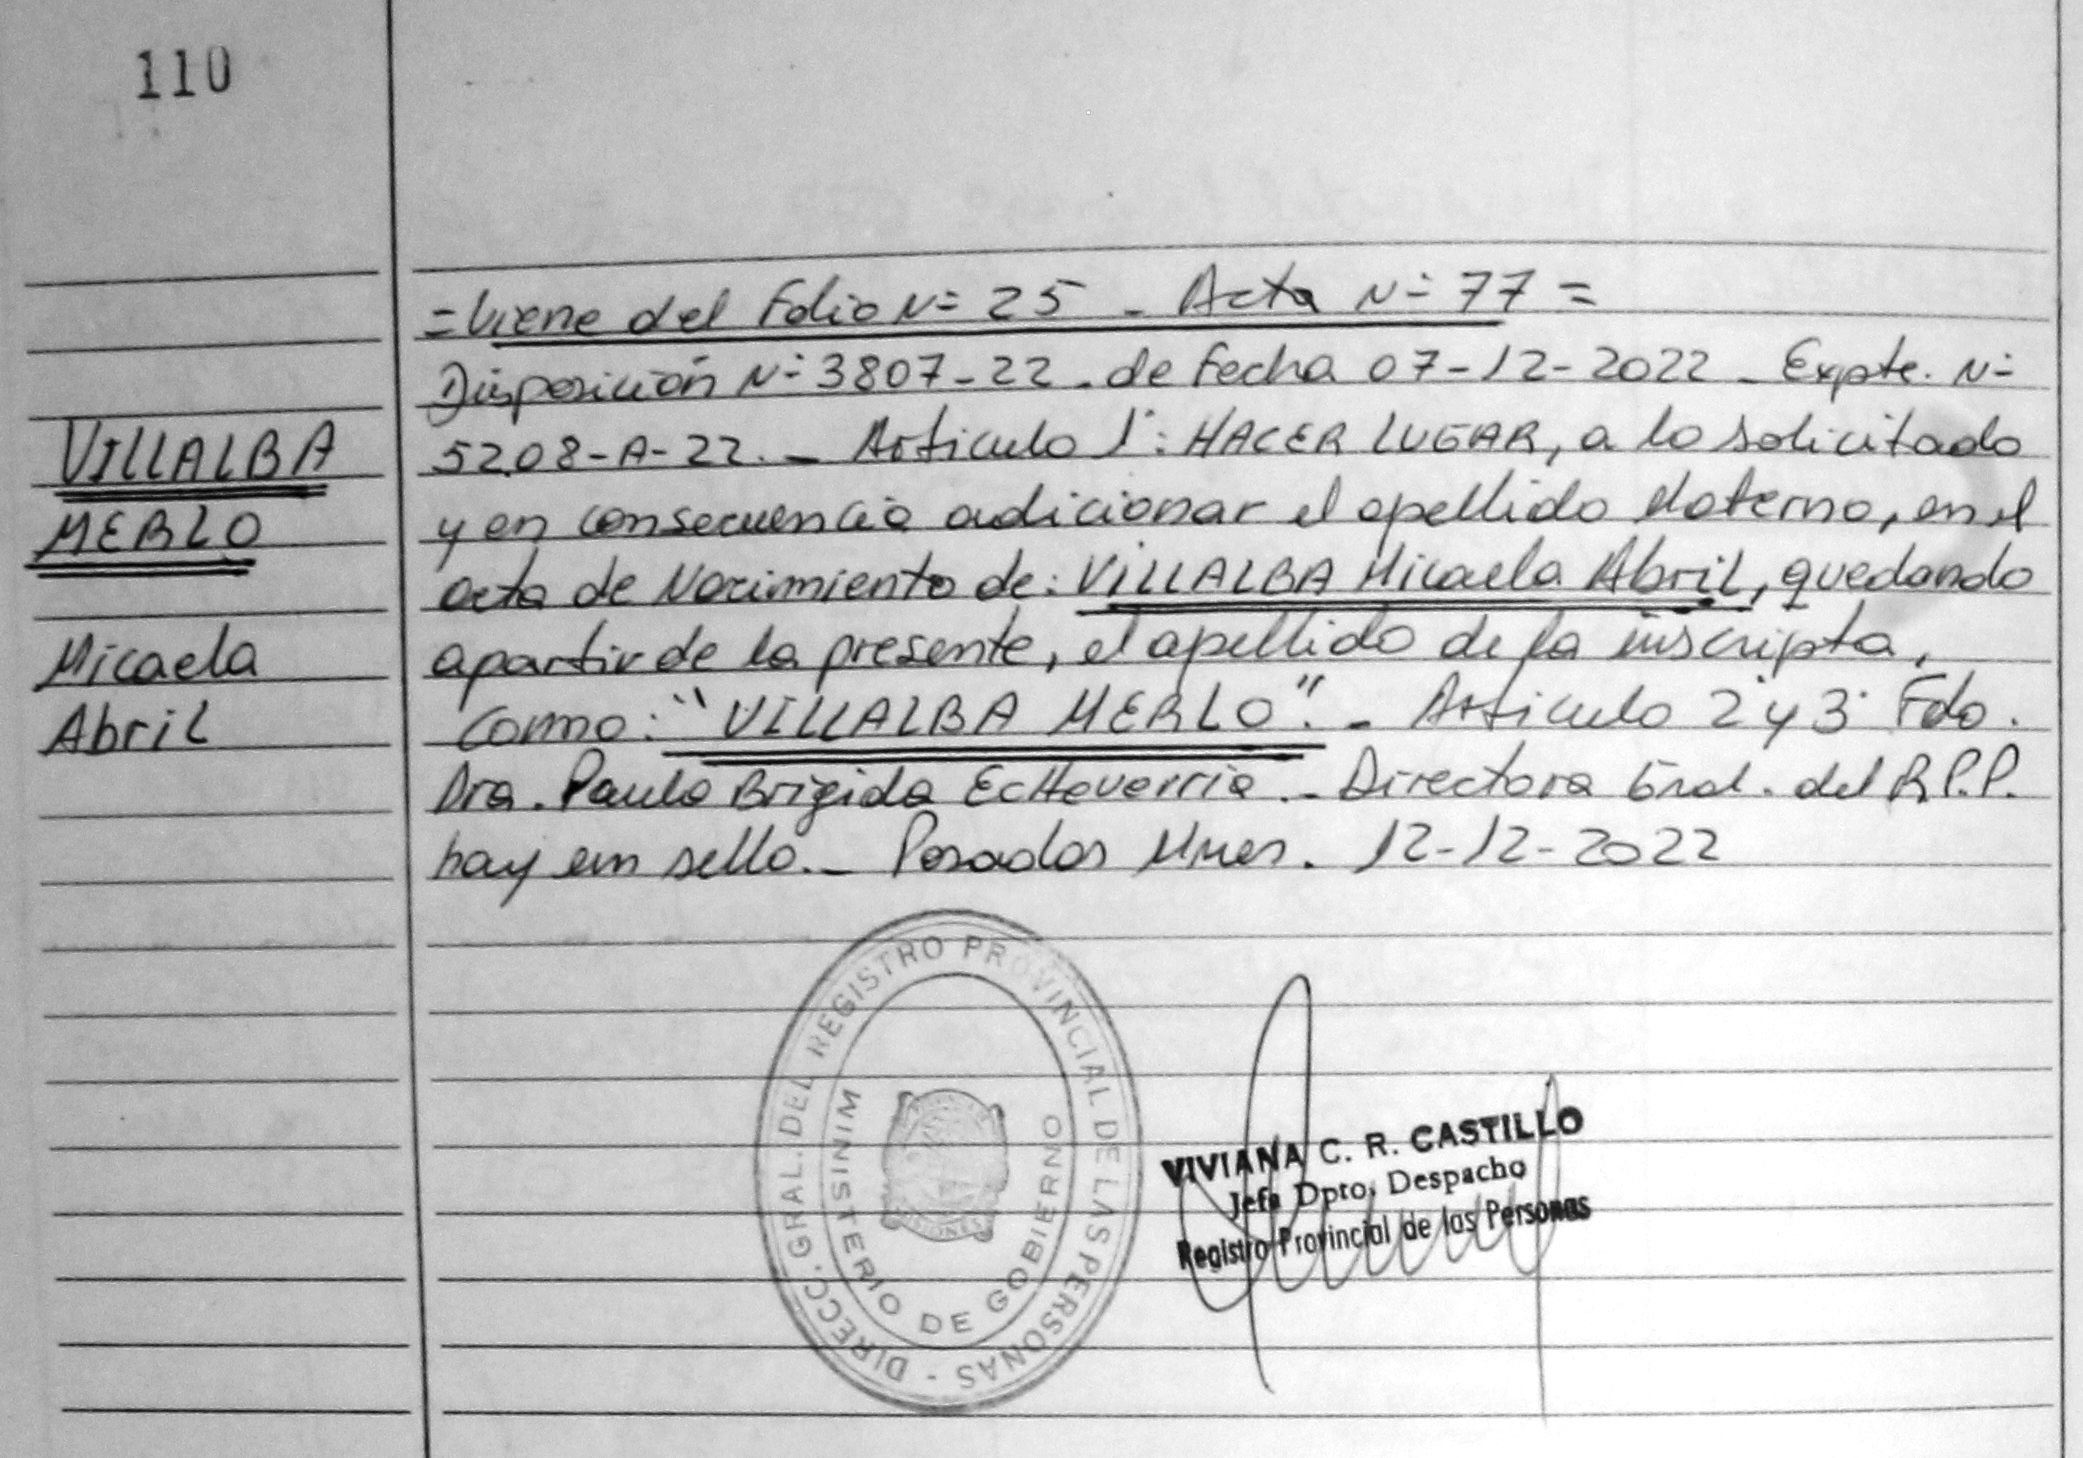 110
=Viene del Folio N= 25 - Acta N= 77 =
Disposición N= 3807-22 - de Fecha 07-12-2022 - Expte. N=
5208-A-22. - Articulo 1°: HACER LUGAR, a lo solicitado
y en consecuencia adicionar el apellido Materno, en el
acta de Nacimiento de: VILLALBA Micaela Abril, quedando
apartir de la presente, el apellido de la inscripta,
como: "VILLALBA MERLO". - Articulo 2° y 3° Fdo.
Dra. Paula Brigida Echeverria. - Directora Gral. del R.P.P.
hay un sello. - Posadas Mnes. 12-12-2022
VILLALBA
MERLO
Micaela
Abril
DIRECC. GRAL. DEL REGISTRO PROVINCIAL DE LAS PERSONAS -
MINISTERIO DE GOBIERNO
MISIONES
VIVIANA C. R. CASTILLO
Jefa Dpto. Despacho
Registro Provincial de las Personas